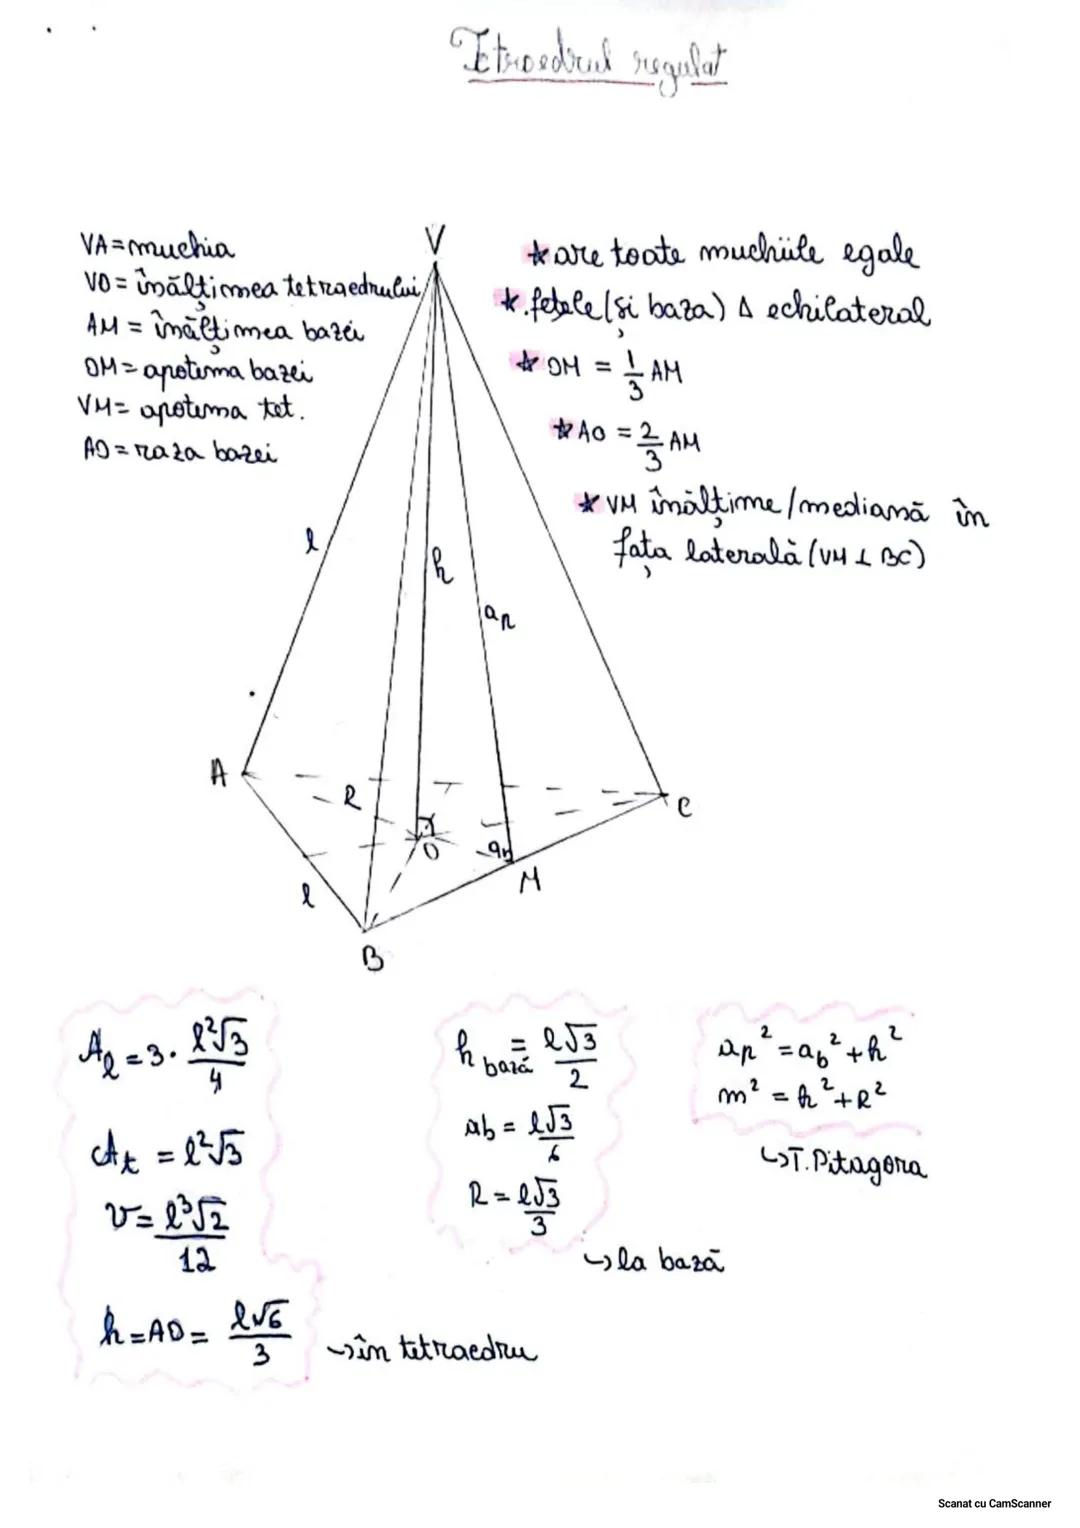 Tetraedrul regulat
VA = muchia
VO = înălțimea tetraedrului
AM = înălțimea bazei
OM = apotema bazei
VM = apotema tet.
AO = raza bazei
* are toate muchiile egale
* fețele (și baza) Δ echilateral
* OM = 1/3 AM
* AO = 2/3 AM
* VM înălțime / mediană în
fața laterală (VM ⊥ BC)
V
l
h
ap
A
R
O
ab
C
M
l
B
Al = 3 · l²√3/4
At = l²√3
V = l³√2/12
h = AO = l√6/3 → în tetraedru
h bază = l√3/2
ab = l√3/6
R = l√3/3
↳ la bază
ap² = ab² + h²
m² = h² + R²
↳ T. Pitagora
Scanat cu CamScanner